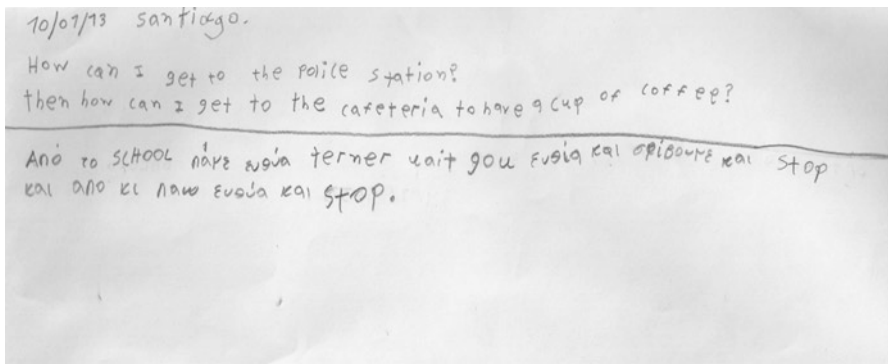 10/01/13 santiago.
How can I get to the police station?
then how can I get to the cafeteria to have a cup of coffee?
Από το SCHOOL πάμε ευθία terner kait gou ευθία και στρίβουμε και stop
και απο κι παω ευθία και stop.